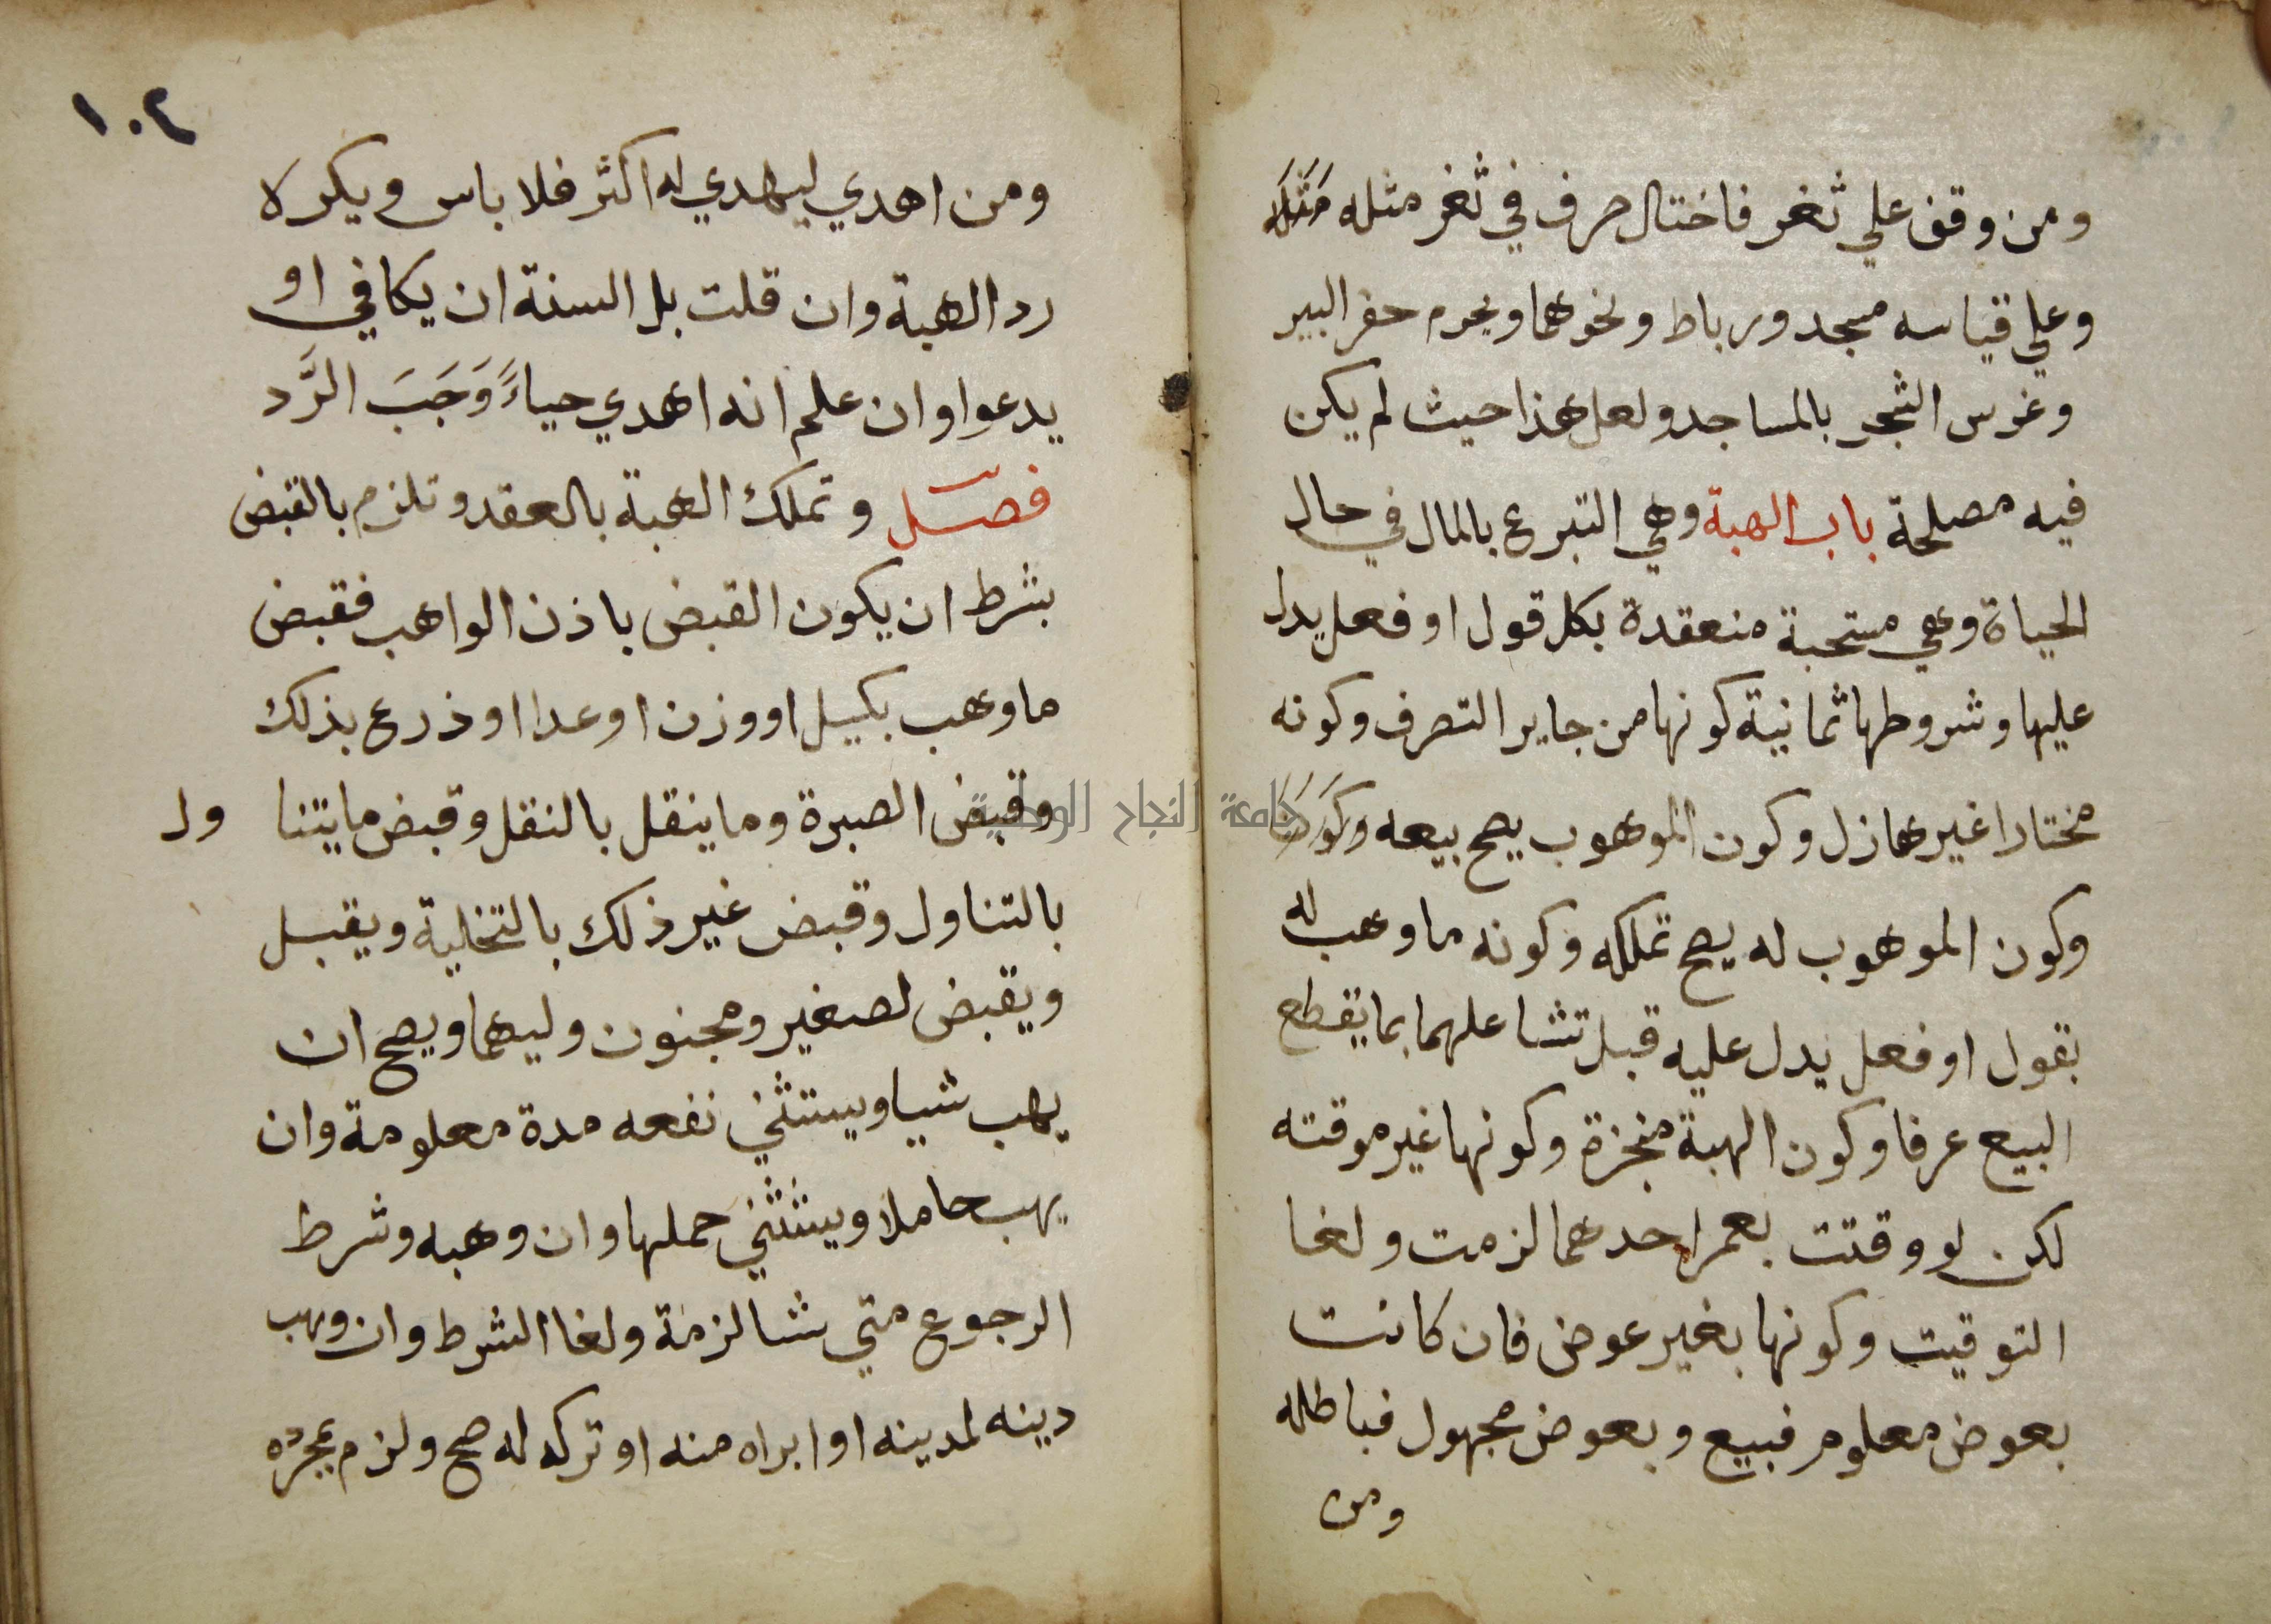 ومن وقف علي ثغر فاختال صرف في ثغر مثله
وعلي قياسه مسجد ورباط ونحوهما ويحرم حفر البير
وغرس الشجر بالمساجد ولعل هذا حيث لم يكن
فيه مصلحة باب الهبة وهي التبرع بالمال في حال
الحياة وهي مستحبة منعقدة بكل قول او فعل يدل
عليها وشروطها ثمانية كونها من جايز التصرف وكونه
مختارا غير هازل وكون الموهوب يصح بيعه
وكون الموهوب له يصح تملكه وكونه ما وهب له
بقول او فعل يدل عليه قبل تشاغلهما بما يقطع
البيع عرفا وكون الهبة منجزة وكونها غير موقته
لكن لو وقتت بعمر احدهما لزمت ولغا
التوقيت وكونها بغير عوض فان كانت
بعوض معلوم فبيع وبعوض مجهول فباطله
ومن
١٠٢
ومن اهدي ليهدي له اكثر فلا باس ويكره
رد الهبة وان قلت بل السنة ان يكافي او
يدعوا وان علم انه اهدي حياءً وَجَبَ الرَّد
فصل وتملك الهبة بالعقد وتلزم بالقبض
بشرط ان يكون القبض باذن الواهب فقبض
ما وهب بكيل او وزن او عدا او ذرع بذلك
وقبض الصبرة وما ينقل بالنقل وقبض ما يتنا ول
بالتناول وقبض غير ذلك بالتخلية ويقبل
ويقبض لصغير ومجنون وليهما ويصح ان
يهب شيا ويستثني نفعه مدة معلومة وان
يهب حاملا ويستثني حملها وان وهبه وشرط
الرجوع متي شا لزمة ولغا الشرط وان وهب
دينه لمدينه او ابراه منه او تركه له صح ولزم بمجرده
جامعة النجاح الوطنية